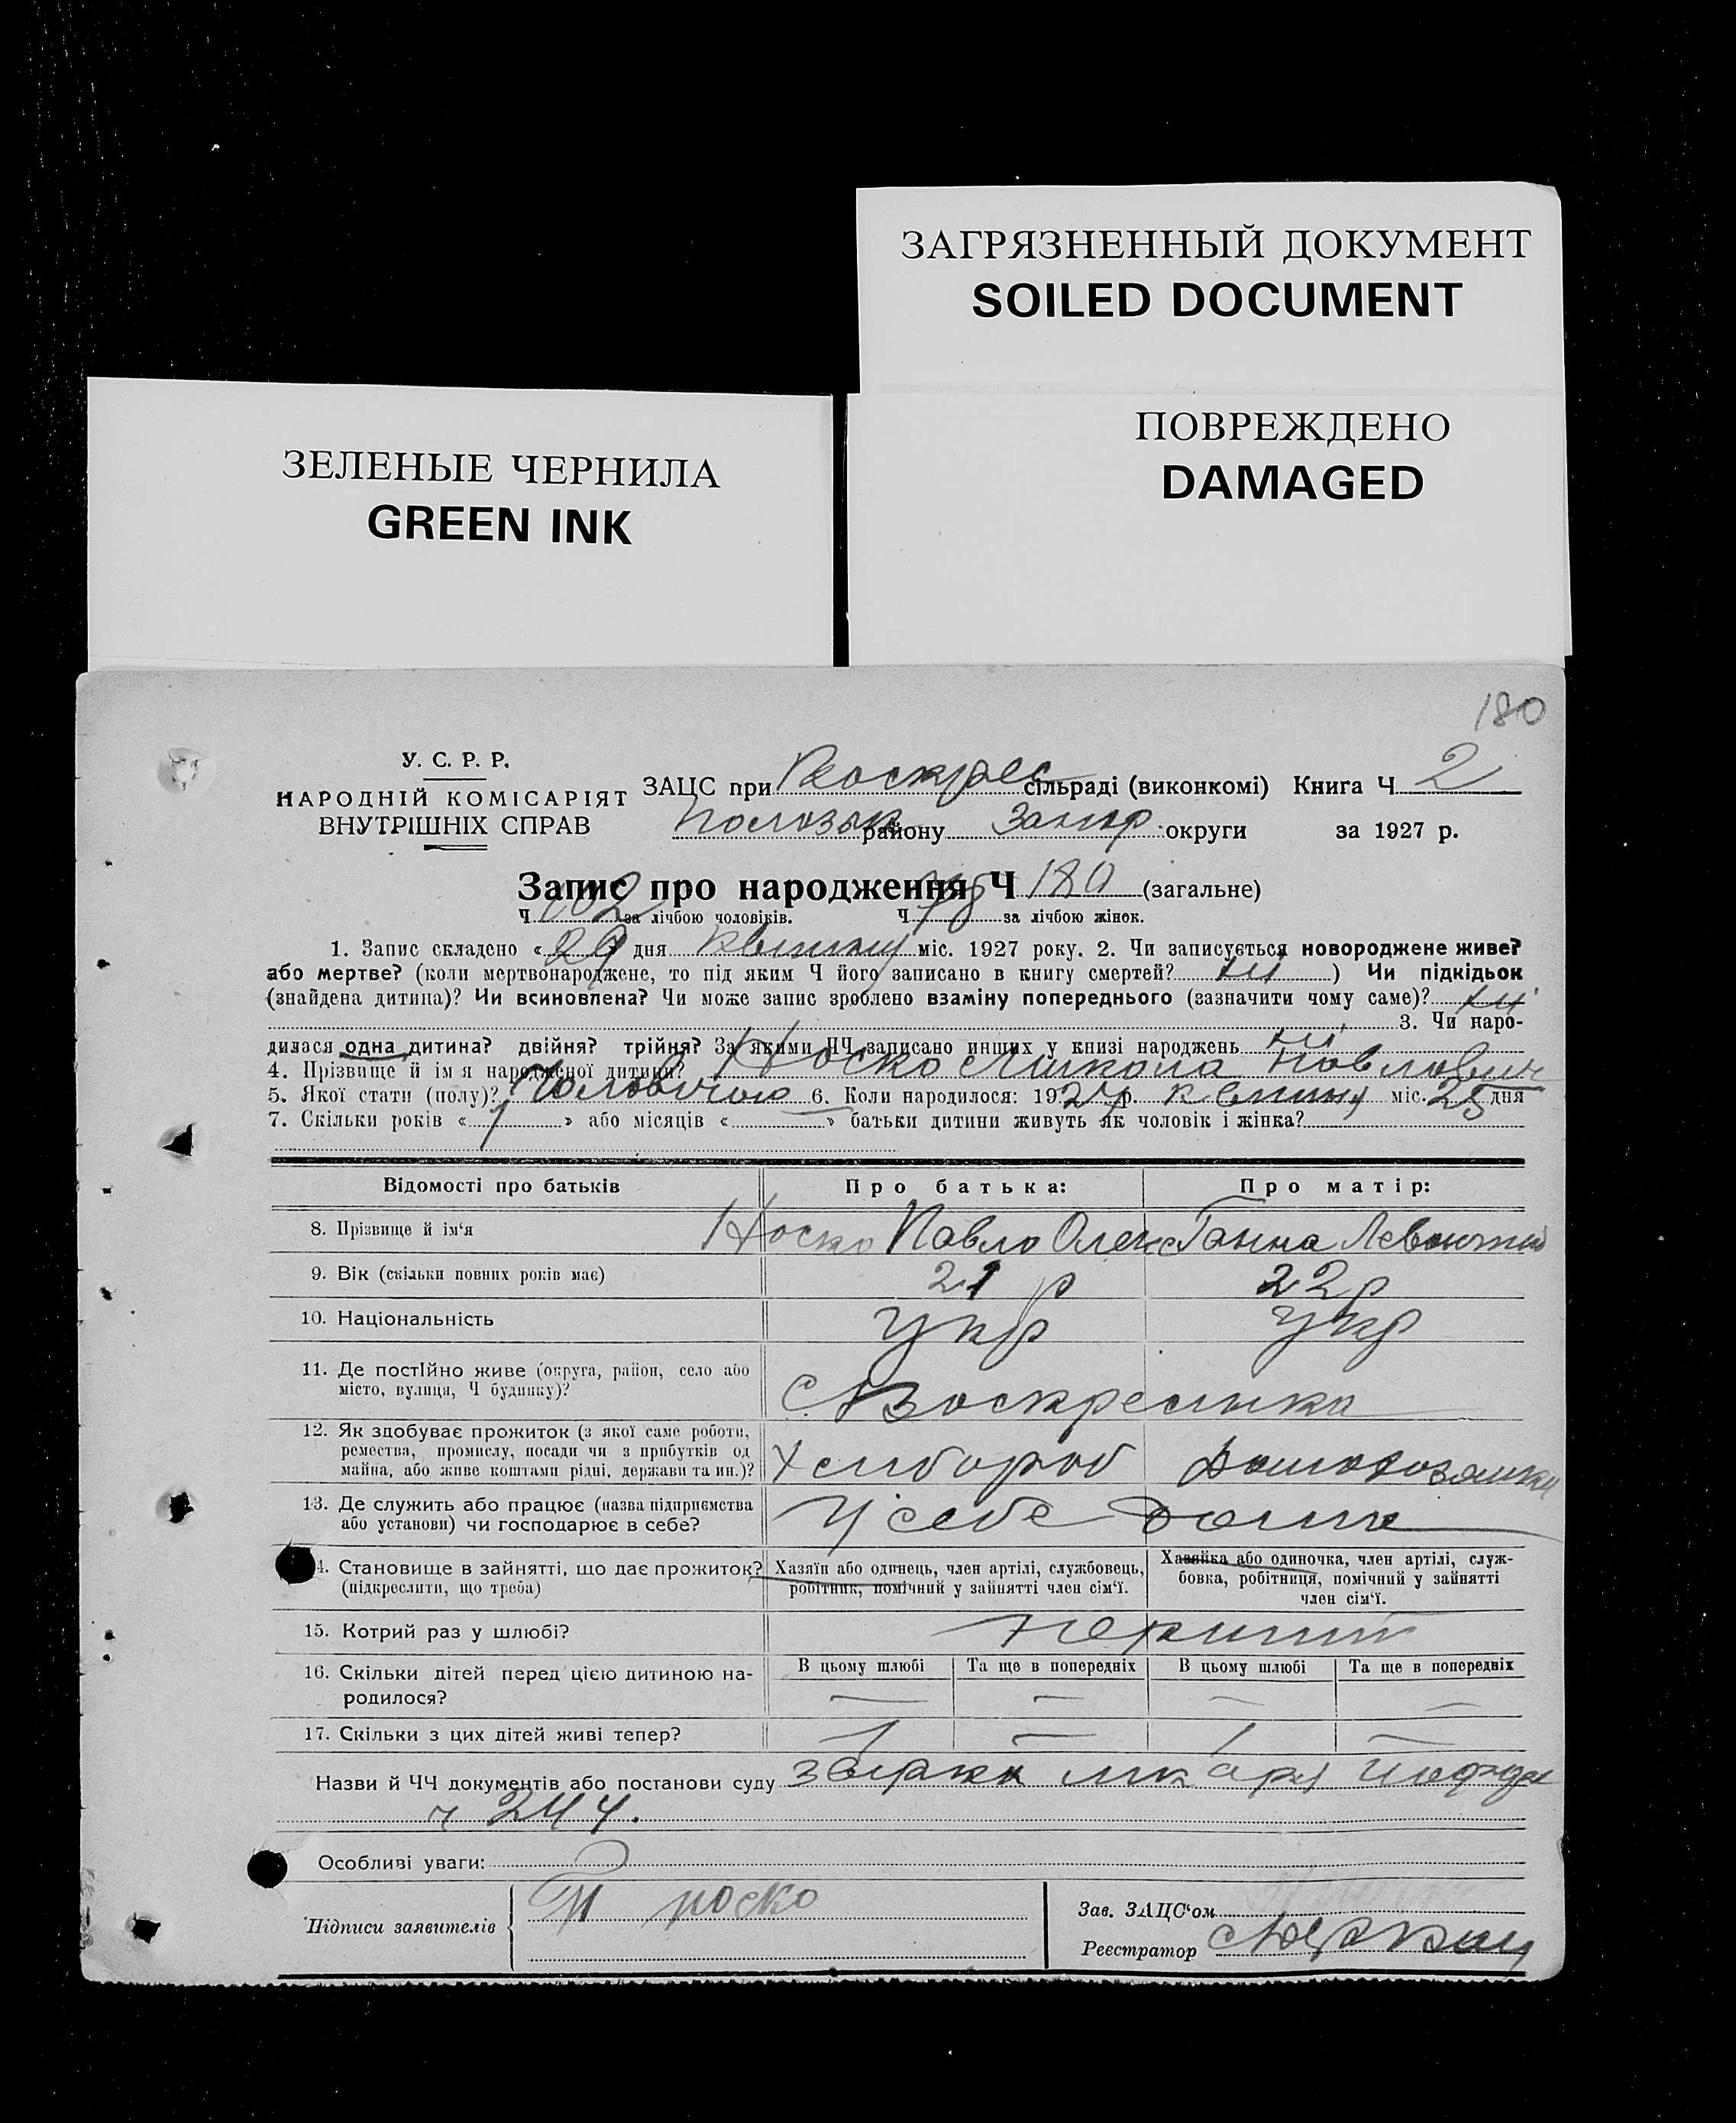 ЗАГРЯЗНЕННЫЙ ДОКУМЕНТ
SOILED DOCUMENT
ЗЕЛЕНЫЕ ЧЕРНИЛА
GREEN INK
ПОВРЕЖДЕНО
DAMAGED
180
У. С. Р. Р.
НАРОДНІЙ КОМІСАРІЯТ
ВНУТРІШНІХ СПРАВ
ЗАЦС при Воскрес сільраді (виконкомі) Книга Ч 2
району Запор округи за 1927 р.
Запис про народження Ч 180 (загальне)
Ч 102 за лічбою чоловіків. Ч 78 за лічбою жінок.
1. Запис складено «29» дня квітня міс. 1927 року. 2. Чи записується новороджене живе?
або мертве? (коли мертвонароджене, то під яким Ч його записано в книгу смертей? ні ) Чи підкідьок
(знайдена дитина)? Чи всиновлена? Чи може запис зроблено взаміну попереднього (зазначити чому саме)? ні
3. Чи наро-
дилася одна дитина? двійня? трійня? За якими ЧЧ записано инших у книзі народжень ні
4. Прізвище й ім'я народженої дитини? Носко Микола Павлович
5. Якої стати (полу)? Чоловічою 6. Коли народилося: 1927 р. квітня міс. 25 дня
7. Скільки років «1» або місяців « » батьки дитини живуть як чоловік і жінка?
Відомості про батьків Про батька: Про матір:
8. Прізвище й ім'я Носко Павло Олекс Ганна
9. Вік (скільки повних років має) 21 р 22 р
10. Національність Укр Укр
11. Де постІйно живе (округа, район, село або
місто, вулиця, Ч будинку)? С Воскресенка
12. Як здобуває прожиток (з якої саме роботи,
ремества, промислу, посади чи з прибутків од
майна, або живе коштами рідні, держави та ин.)? Хлибороб Домохозяйка
13. Де служить або працює (назва підприємства
або установи) чи господарює в себе? У себе дома
4. Становище в зайнятті, що дає прожиток?
(підкреслити, що треба)
Хазяїн або одинець, член артілі, службовець,
робітник, помічний у зайнятті член сім'ї.
Хазяйка або одиночка, член артілі, служ-
бовка, робітниця, помічний у зайнятті
член сім'ї.
15. Котрий раз у шлюбі?
16. Скільки дітей перед цією дитиною на-
родилося?
В цьому шлюбі Та ще в попередніх В цьому шлюбі Та ще в попередніх
— — — —
17. Скільки з цих дітей живі тепер? 1 — 1 —
Назви й ЧЧ документів або постанови суду
ч 244.
Особливі уваги:
Підписи заявителів П Носко
Зав. ЗАЦС'ом
Реестратор